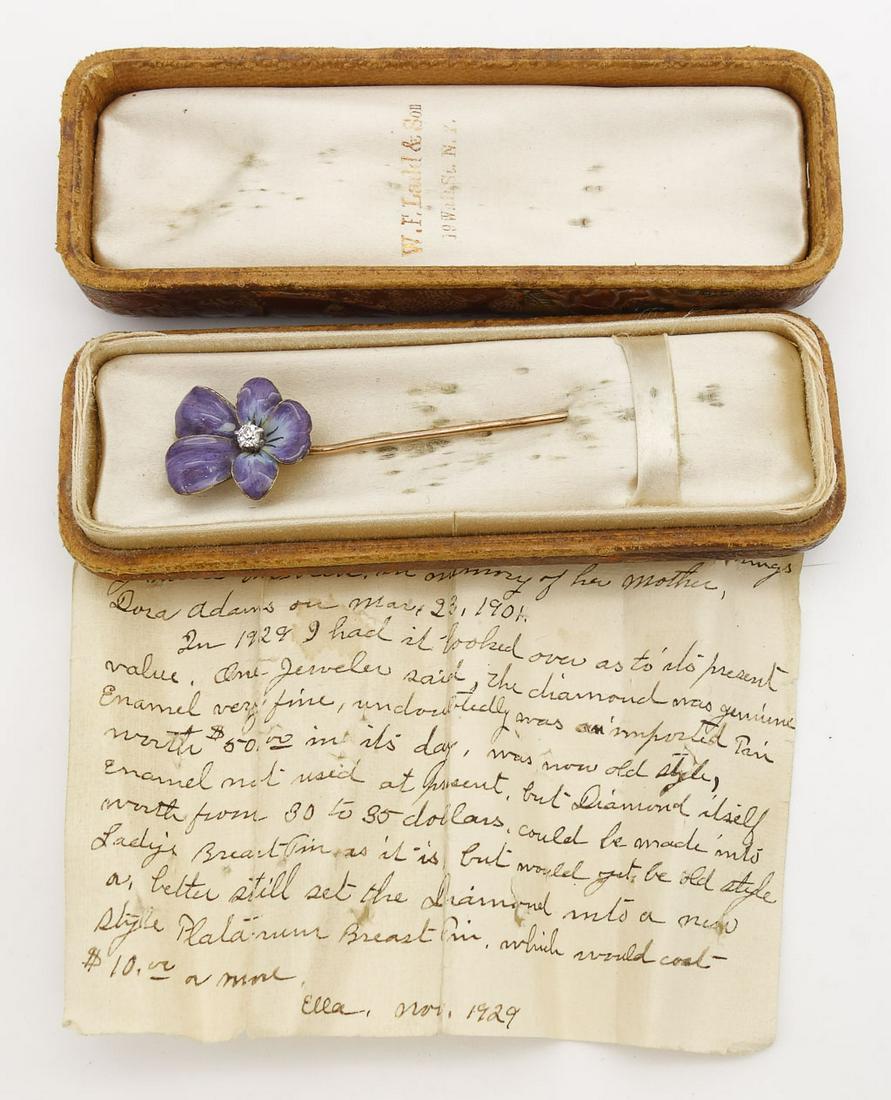 W. F. Ladd & Son
19 Wall St. N. Y.
in memory of her mother,
Dora Adams on Mar. 23, 1901.
In 1929 I had it looked over as to it's present
value. One Jeweler said, the diamond was genuine
Enamel very fine, undoubtedly was an imported Pin
worth $50.00 in its day, was now old style,
Enamel not used at present, but Diamond itself
worth from 30 to 35 dollars, could be made into
Lady's Breast Pin as it is, but would yet be old style
or, better still set the Diamond into a new
style Platanum Breast Pin, which would cost
$10.00 or more.
Ella, Nov. 1929